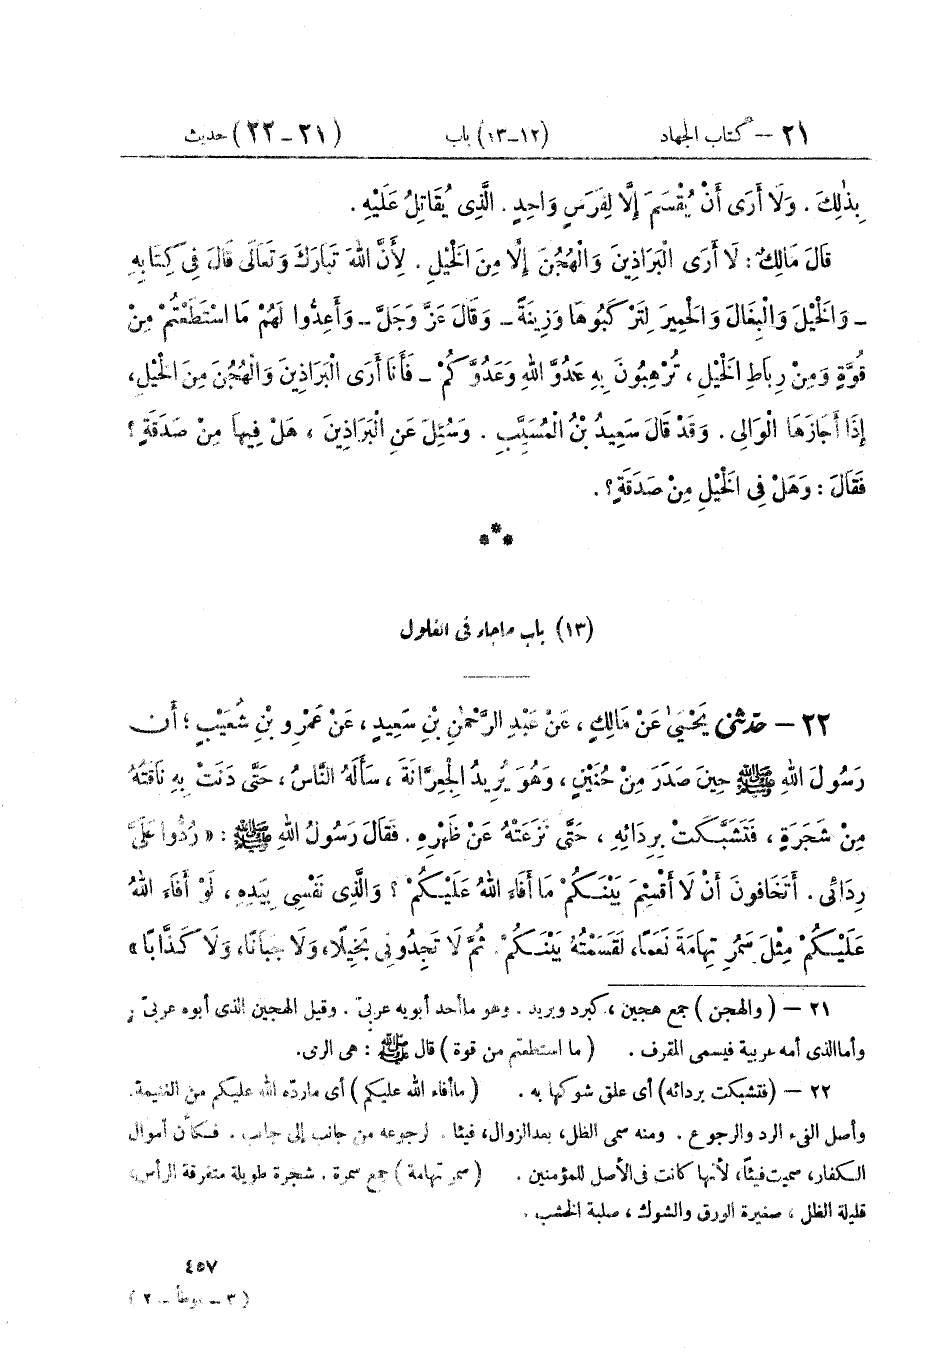 ٢١ — كتاب الجهاد (١٢-١٣) باب (٢١-٢٢) حديث
بِذٰلِكَ . وَلَا أَرَى أَنْ يُقْسَمَ إِلَّا لِفَرَسٍ وَاحِدٍ . الَّذِى يُقَاتِلُ عَلَيْهِ .
قَالَ مَالِكٌ : لَا أَرَى الْبَرَاذِينَ وَالْهُجُنَ إِلَّا مِنَ الْخَيْلِ . لِأَنَّ اللهَ تَبَارَكَ وَتَعَالَى قَالَ فِى كِتَابِهِ
ـ وَالْخَيْلَ وَالْبِغَالَ وَالْحَمِيرَ لِتَرْكَبُوهَا وَزِينَةً ـ وَقَالَ عَزَّ وَجَلَّ ـ وَأَعِدُّوا لَهُمْ مَا اسْتَطَعْتُمْ مِنْ
قُوَّةٍ وَمِنْ رِبَاطِ الْخَيْلِ ، تُرْهِبُونَ بِهِ عَدُوَّ اللهِ وَعَدُوَّكُمْ ـ فَأَنَا أَرَى الْبَرَاذِينَ وَالْهُجُنَ مِنَ الْخَيْلِ ،
إِذَا أَجَازَهَا الْوَالِى . وَقَدْ قَالَ سَعِيدُ بْنُ الْمُسَيَّبِ . وَسُئِلَ عَنِ الْبَرَاذِينَ ، هَلْ فِيهَا مِنْ صَدَقَةٍ ؟
فَقَالَ : وَهَلْ فِى الْخَيْلِ مِنْ صَدَقَةٍ ؟ .
***
(١٣) باب ماجاء فى الغلول
٢٢ — حدثنى يَحْيَىٰ عَنْ مَالِكٍ ، عَنْ عَبْدِ الرَّحْمٰنِ بْنِ سَعِيدٍ ، عَنْ عَمْرِو بْنِ شُعَيْبٍ ؛ أَن
رَسُولَ اللهِ ﷺ حِينَ صَدَرَ مِنْ حُنَيْنٍ ، وَهُوَ يُرِيدُ الْجِعِرَّانَةَ ، سَأَلَهُ النَّاسُ ، حَتَّى دَنَتْ بِهِ نَاقَتُهُ
مِنْ شَجَرَةٍ ، فَتَشَبَّكَتْ بِرِدَائِهِ ، حَتَّى نَزَعَتْهُ عَنْ ظَهْرِهِ . فَقَالَ رَسُولُ اللهِ ﷺ : « رُدُّوا عَلَىَّ
رِدَائِى . أَتَخَافُونَ أَنْ لَا أَقْسِمَ بَيْنَكُمْ مَا أَفَاءَ اللهُ عَلَيْكُمْ ؟ وَالَّذِى نَفْسِى بِيَدِهِ ، لَوْ أَفَاءَ اللهُ
عَلَيْكُمْ مِثْلَ سَمُرِ تِهَامَةَ نَعَمًا ، لَقَسَمْتُهُ بَيْنَكُمْ . ثُمَّ لَا تَجِدُونِى بَخِيلًا ، وَلَا جَبَانًا ، وَلَا كَذَّابًا »
٢١ — ( والهجن ) جمع هجين ، كبرد وبريد . وهو ماأحد أبويه عربىّ . وقيل الهجين الذى أبوه عربىّ و
وأما الذى أمه عربية فيسمى المقرف . ( ما استطعتم من قوة ) قال ﷺ : هى الرمى .
٢٢ — (فتشبكت بردائه) أى علق شوكها به . ( ماأفاء الله عليكم ) أى ماردّه الله عليكم من الغنيمة .
وأصل الفىء الرد والرجوع . ومنه سمى الظل ، بعد الزوال ، فيئا . لرجوعه من جانب إلى جانب . فكأن أموال
الكفار ، سميت فيئًا ، لأنها كانت فى الأصل للمؤمنين . ( سمر تهامة ) جمع سمرة . شجرة طويلة متفرقة الرأس ،
قليلة الظل ، صغيرة الورق والشوك ، صلبة الخشب .
٤٥٧
( ٣ ـ موطأ ـ ٢ )